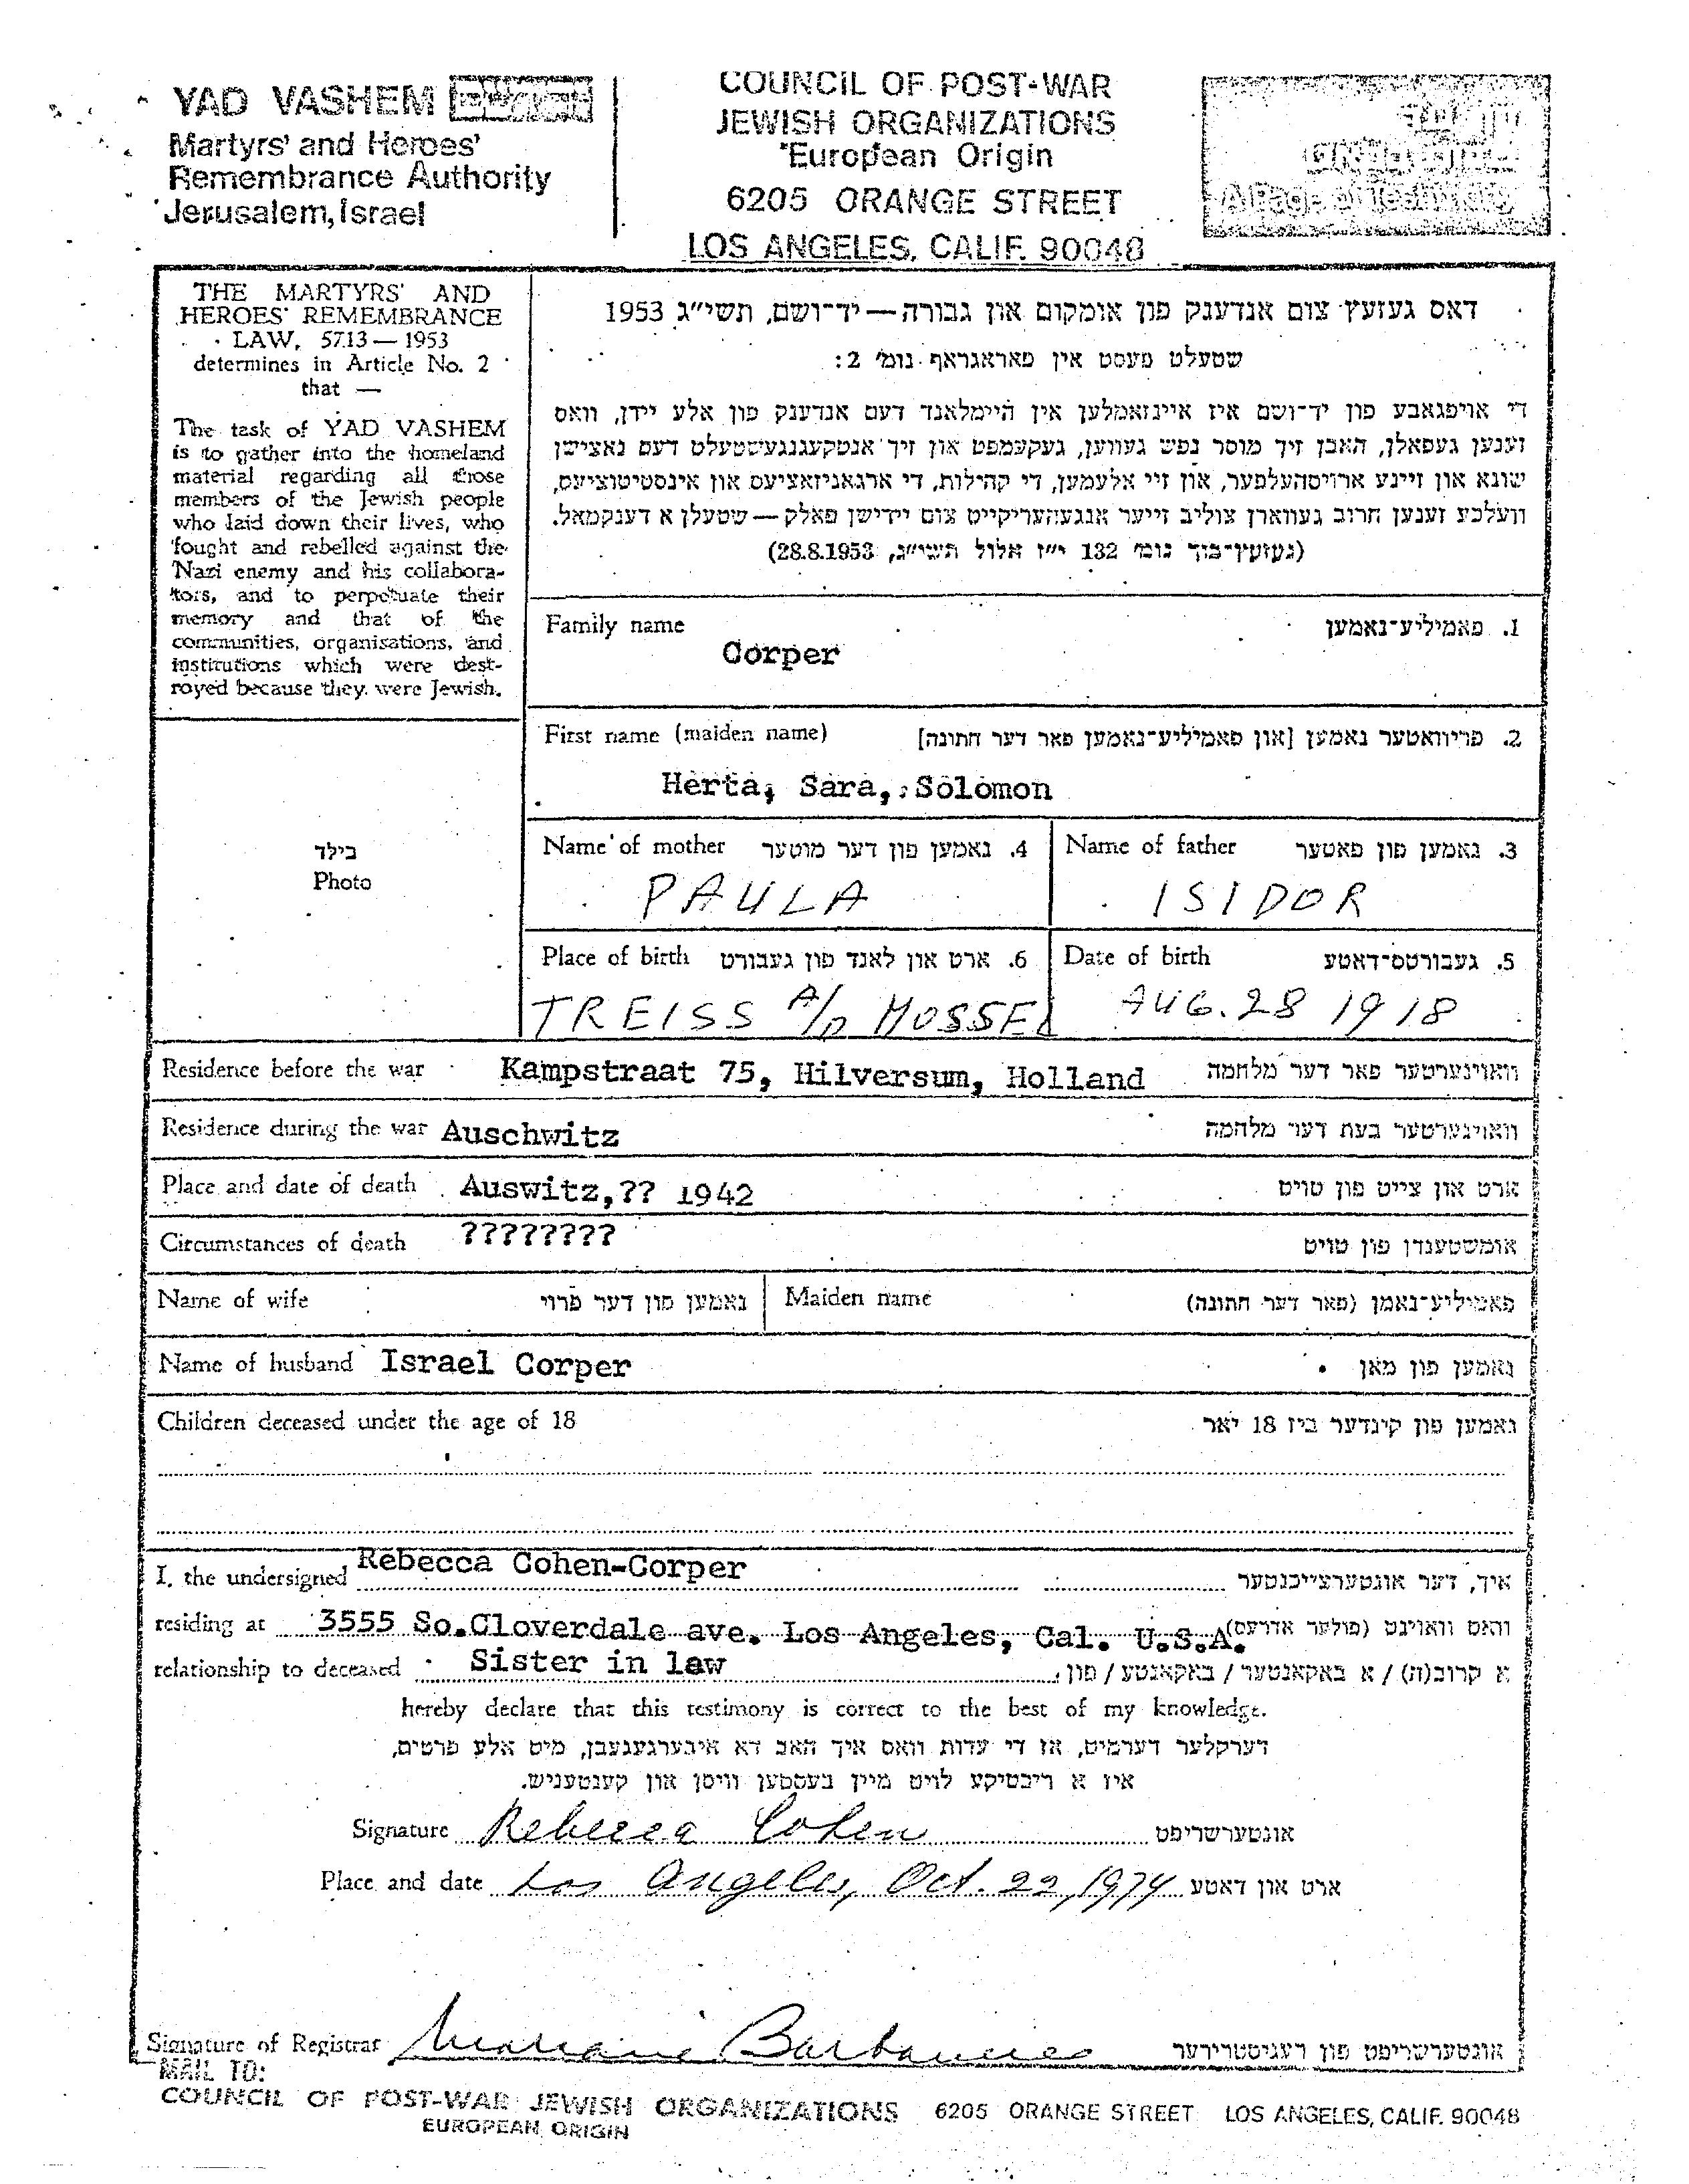 YAD VASHEM
Martyrs' and Heroes'
Remembrance Authority
Jerusalem, Israel
COUNCIL OF POST-WAR
JEWISH ORGANIZATIONS
European Origin
6205 ORANGE STREET
LOS ANGELES, CALIF. 90048
A Page of Testimony
THE MARTYRS' AND
HEROES' REMEMBRANCE
LAW, 5713 — 1953
determines in Article No. 2
that —
The task of YAD VASHEM
is to gather into the homeland
material regarding all those
members of the Jewish people
who laid down their lives, who
fought and rebelled against the
Nazi enemy and his collabora-
tors, and to perpetuate their
memory and that of the
communities, organisations, and
institutions which were dest-
royed because they were Jewish.
דאס געזעץ צום אנדענק פון אומקום און גבורה — יד־ושם, תשי״ג 1953
שטעלט פעסט אין פאראגראף נומ׳ 2:
די אויפגאבע פון יד־ושם איז איינזאמלען אין היימלאנד דעם אנדענק פון אלע יידן, וואס
זענען געפאלן, האבן זיך מוסר נפש געווען, געקעמפט און זיך אנטקעגנגעשטעלט דעם נאצישן
שונא און זיינע ארויסהעלפער, און זיי אלעמען, די קהילות, די ארגאניזאציעס און אינסטיטוציעס,
וועלכע זענען חרוב געווארן צוליב זייער אנגעהעריקייט צום יידישן פאלק — שטעלן א דענקמאל.
(געזעץ־בוך נומ׳ 132 י״ז אלול תשי״ג, 28.8.1953)
Family name 1. פאמיליע־נאמען
Corper
First name (maiden name) 2. פריוואטער נאמען [און פאמיליע־נאמען פאר דער חתונה]
Herta, Sara, Solomon
בילד
Photo
Name of mother 4. נאמען פון דער מוטער Name of father 3. נאמען פון פאטער
PAULA ISIDOR
Place of birth 6. ארט און לאנד פון געבורט Date of birth 5. געבורטס־דאטע
TREISS A/D MOSSEL AUG. 28 1918
Residence before the war Kampstraat 75, Hilversum, Holland וואוינערטער פאר דער מלחמה
Residence during the war Auschwitz וואוינערטער בעת דער מלחמה
Place and date of death Auswitz,?? 1942 ארט און צייט פון טויט
Circumstances of death ???????? אומשטענדן פון טויט
Name of wife נאמען פון דער פרוי Maiden name פאמיליע־נאמן (פאר דער חתונה)
Name of husband Israel Corper נאמען פון מאן
Children deceased under the age of 18 נאמען פון קינדער ביז 18 יאר
I, the undersigned Rebecca Cohen-Corper איך, דער אונטערצייכנטער
residing at 3555 So.Cloverdale ave. Los Angeles, Cal. U.S.A. וואס וואוינט (פולער אדרעס)
relationship to deceased Sister in law א קרוב(ה) / א באקאנטער / באקאנטע / פון
hereby declare that this testimony is correct to the best of my knowledge.
דערקלער דערמיט, אז די עדות וואס איך האב דא איבערגעגעבן, מיט אלע פרטים,
איז א ריכטיקע לויט מיין בעסטען וויסן און קענטעניש.
Signature Rebecca Cohen אונטערשריפט
Place and date Los Angeles, Oct. 22, 1974 ארט און דאטע
Signature of Registrar אונטערשריפט פון רעגיסטרירער
MAIL TO:
COUNCIL OF POST-WAR JEWISH ORGANIZATIONS 6205 ORANGE STREET LOS ANGELES, CALIF. 90048
EUROPEAN ORIGIN